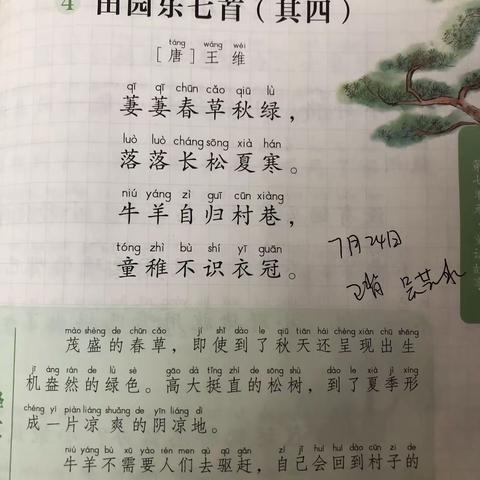 4 田园乐七首（其四）
táng wáng wéi
［唐］王 维
qī qī chūn cǎo qiū lǜ
萋萋春草秋绿，
luò luò cháng sōng xià hán
落落长松夏寒。
niú yáng zì guī cūn xiàng
牛羊自归村巷，
tóng zhì bù shí yī guān
童稚不识衣冠。
7月24日
mào shèng de chūn cǎo jí shǐ dào le qiū tiān hái chéng xiàn chū shēng
茂盛的春草，即使到了秋天还呈现出生
jī àng rán de lǜ sè gāo dà tǐng zhí de sōng shù dào le xià jì xíng
机盎然的绿色。高大挺直的松树，到了夏季形
chéng yí piàn liáng shuǎng de yīn liáng dì
成一片凉爽的阴凉地。
niú yáng bù xū yào rén men qù qū gǎn zì jǐ huì huí dào cūn zi de
牛羊不需要人们去驱赶，自己会回到村子的